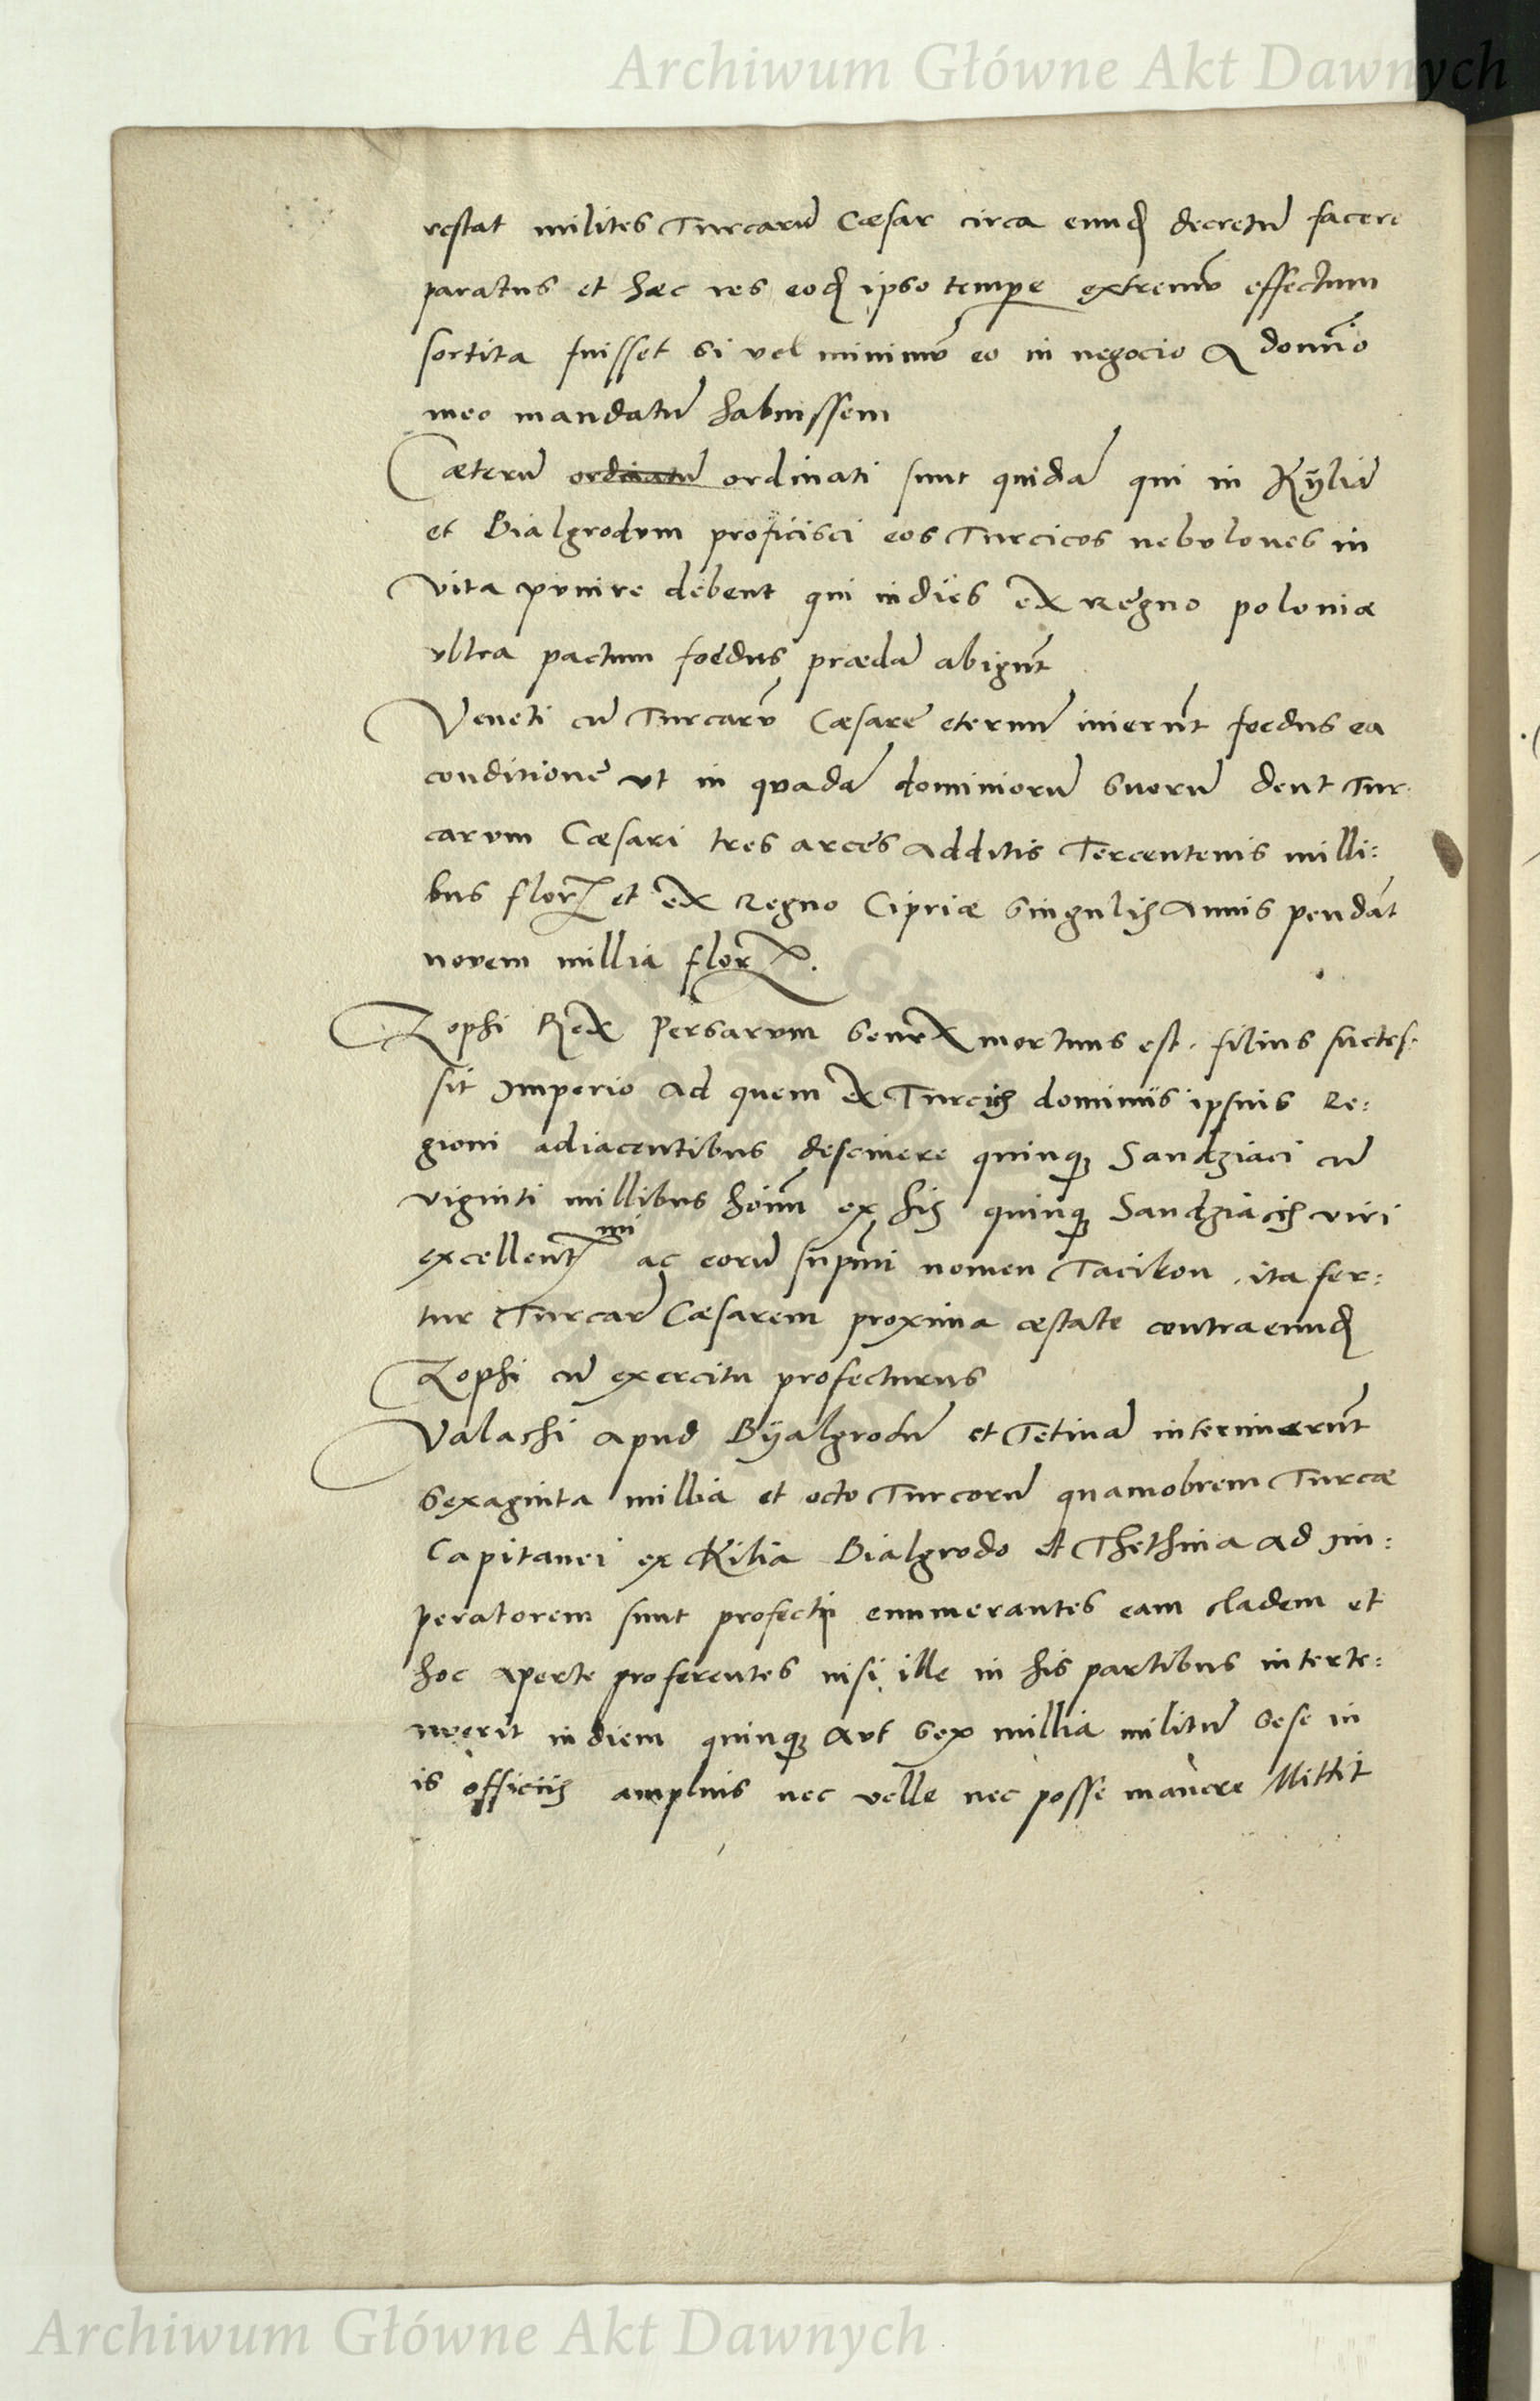 Archiwum Główne Akt Dawnych
restat milites Turcarū Cæsar circa eund decretū facere
paratus et hæc res eod ipso tempe extremū effectum
sortita fuisset si vel minimū eo in negocio a domīo
meo mandatū habuissem
Cæterū ordinatū ordinati sunt quidā qui in Kÿliā
et Bialgrodum proficisci eos Turcicos nebulones in
vita punire debent qui indies ex Regno poloniæ
ultra pactum foedus prædā abigūt
Veneti cū Turcarū Cæsare eternū inierūt foedus ea
conditione ut in quadā dominiorū suorū dent Tur:
carum Cæsari tres arces additis Tercentenis milli:
bus flor et ex Regno Cipriæ singulis Annis pendāt
novem millia flor.
Zophi Rex Persarum senex mortuus est. filius succes:
sit Imperio ad quem ex Turcicis dominiis ipsius Re:
gioni adiacentibus descivere quinq Sandziaci cū
viginti millibus hoīm ex his quinq Sandziacis viri
excellent mi ac eorū supmi nomen Tacikon . ita fer:
tur Turcar Cæsarem proxima æstate contra eund
Zophi cū exercitu profecturus
Valachi apud Bÿalgrodū et Tetinā interimerūt
sexaginta millia et octo Turcorū quamobrem Turcæ
Capitanei ex Kilia Bialgrodo et Thethina ad Im:
peratorem sunt profecti enumerantes eam cladem et
hoc aperte proferentes nisi ille in his partibus interte:
nuerit in diem quinq aut sex millia militū sese in
is officiis amplius nec velle nec posse manere Mittit
Archiwum Główne Akt Dawnych